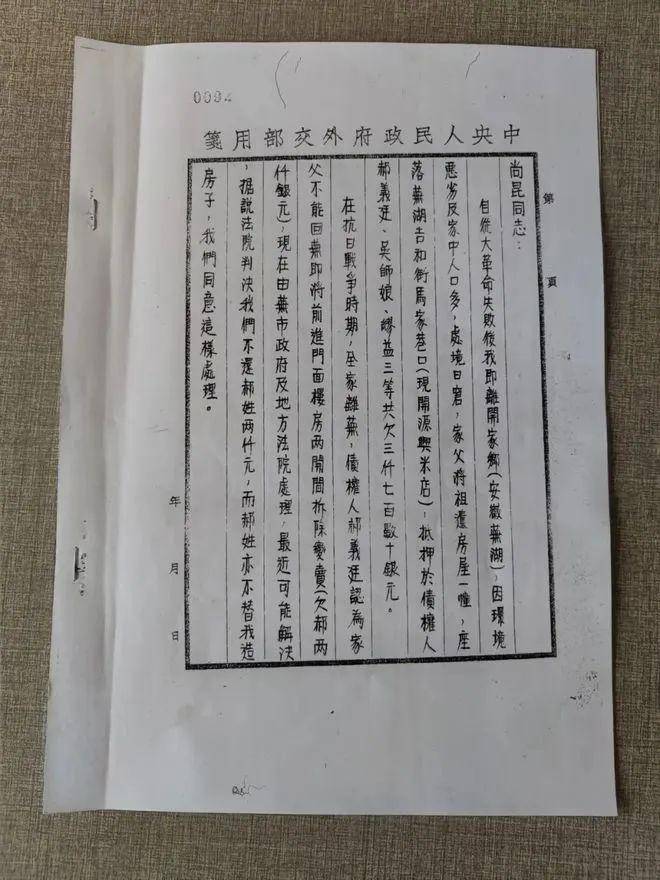 0094
中央人民政府外交部用箋
第 頁
尚昆同志：
自從大革命失敗後我即離開家鄉(安徽蕪湖)，因環境
惡劣及家中人口多，處境日窘，家父將祖遺房屋一幢，座
落蕪湖吉和街馬家巷口(現開源興米店)，抵押於債權人
郝義廷、吳師娘、繆益三等共欠三仟七百數十銀元。
在抗日戰爭時期，全家離蕪，債權人郝義廷認為家
父不能回蕪即將前進門面樓房兩開間拆除變賣(欠郝兩
仟銀元)，現在由蕪市政府及地方法院處理，最近可能解決
，据說法院判决我們不還郝姓两仟元，而郝姓亦不替我造
房子，我們同意這樣處理。
年 月 日